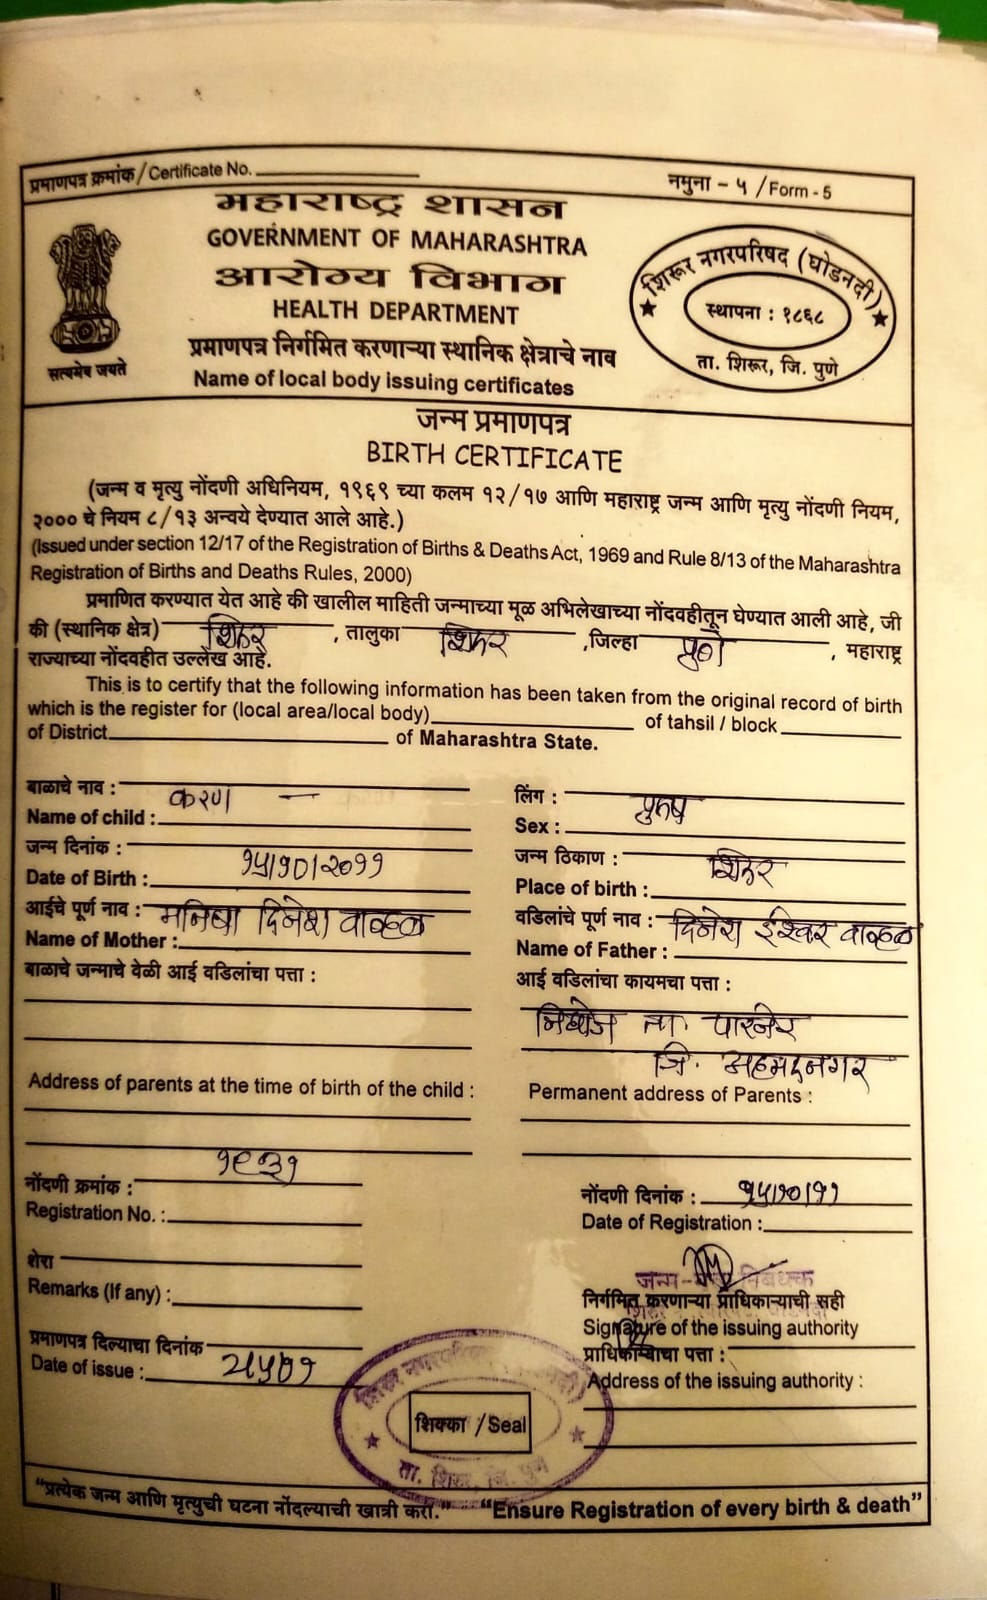 प्रमाणपत्र क्रमांक / Certificate No.
नमुना - ५ / Form - 5
महाराष्ट्र शासन
GOVERNMENT OF MAHARASHTRA
आरोग्य विभाग
HEALTH DEPARTMENT
प्रमाणपत्र निर्गमित करणाऱ्या स्थानिक क्षेत्राचे नाव
Name of local body issuing certificates
सत्यमेव जयते
शिरूर नगरपरिषद (घोडनदी)
स्थापना : १८६८
ता. शिरूर, जि. पुणे
जन्म प्रमाणपत्र
BIRTH CERTIFICATE
(जन्म व मृत्यु नोंदणी अधिनियम, १९६९ च्या कलम १२/१७ आणि महाराष्ट्र जन्म आणि मृत्यु नोंदणी नियम,
२००० चे नियम ८/१३ अन्वये देण्यात आले आहे.)
(Issued under section 12/17 of the Registration of Births & Deaths Act, 1969 and Rule 8/13 of the Maharashtra
Registration of Births and Deaths Rules, 2000)
प्रमाणित करण्यात येत आहे की खालील माहिती जन्माच्या मूळ अभिलेखाच्या नोंदवहीतून घेण्यात आली आहे, जी
की (स्थानिक क्षेत्र) शिरूर , तालुका शिरूर ,जिल्हा पुणे , महाराष्ट्र
राज्याच्या नोंदवहीत उल्लेख आहे.
This is to certify that the following information has been taken from the original record of birth
which is the register for (local area/local body) of tahsil / block
of District of Maharashtra State.
बाळाचे नाव : करण —
Name of child :
लिंग : पुरुष
Sex :
जन्म दिनांक : १५/१०/२०११
Date of Birth :
जन्म ठिकाण : शिरूर
Place of birth :
आईचे पूर्ण नाव : मनिषा दिनेश वाव्हळ
Name of Mother :
वडिलांचे पूर्ण नाव : दिनेश ईश्वर वाव्हळ
Name of Father :
बाळाचे जन्माचे वेळी आई वडिलांचा पत्ता :
आई वडिलांचा कायमचा पत्ता :
निघोज ता. पारनेर
जि. अहमदनगर
Address of parents at the time of birth of the child :
Permanent address of Parents :
नोंदणी क्रमांक : १९३१
Registration No. :
नोंदणी दिनांक : १५/१०/११
Date of Registration :
शेरा
Remarks (If any) :
जन्म- निबंधक
निर्गमित करणाऱ्या प्राधिकाऱ्याची सही
Signature of the issuing authority
प्रमाणपत्र दिल्याचा दिनांक
Date of issue :
प्राधिकाऱ्याचा पत्ता :
Address of the issuing authority :
शिरूर नगरपरिषद
शिक्का / Seal
ता. शिरूर, जि. पुणे
"प्रत्येक जन्म आणि मृत्युची घटना नोंदल्याची खात्री करा."
"Ensure Registration of every birth & death"